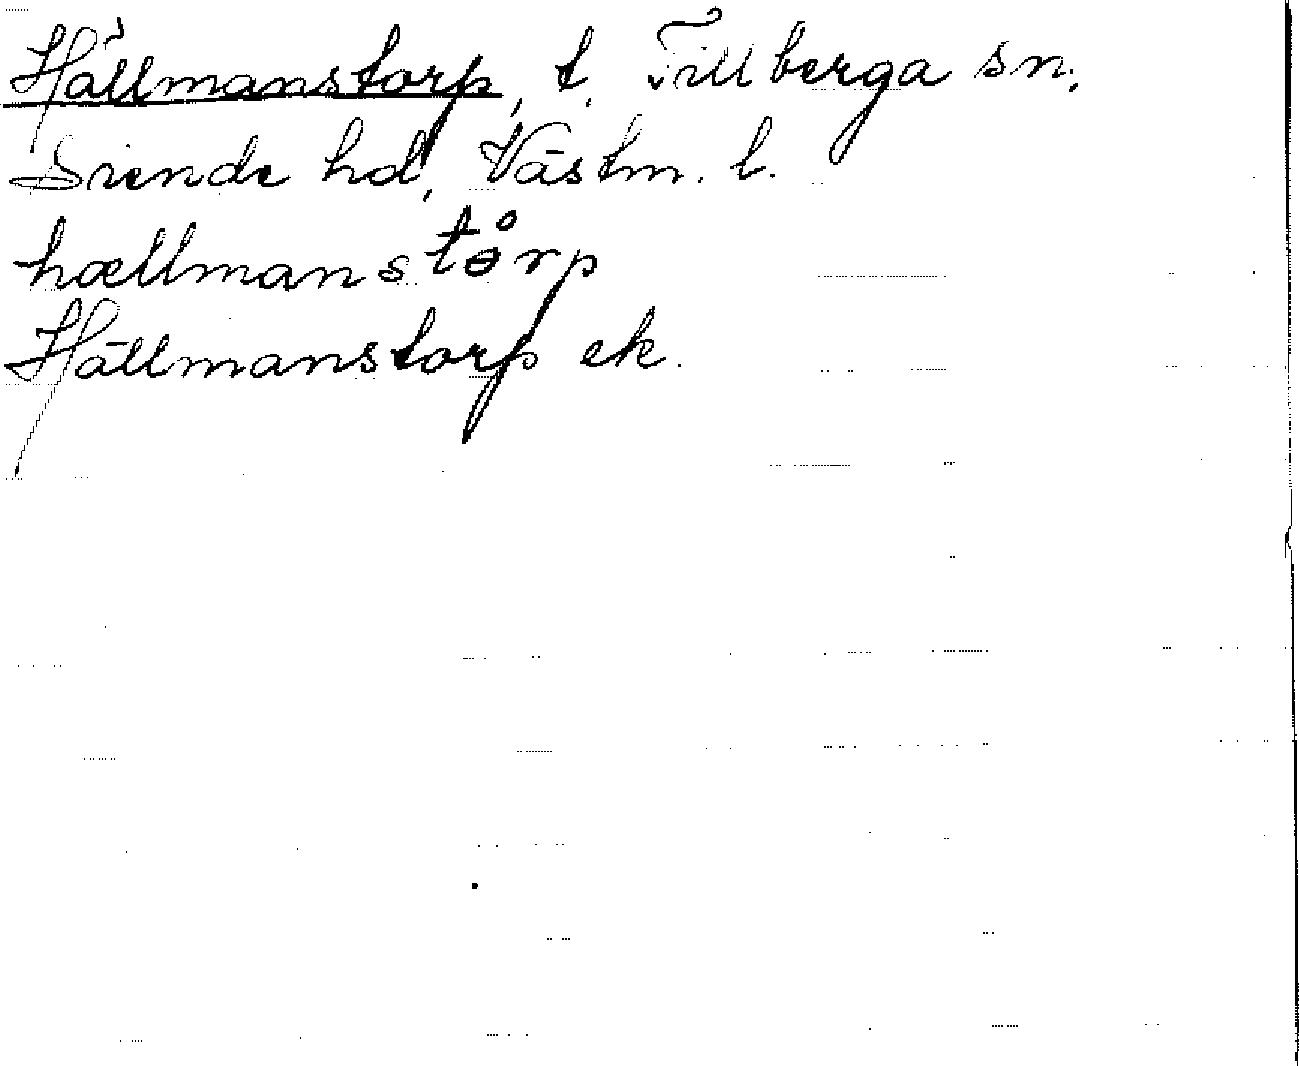 Hällmanstorp, t. Tillberga sn.
Siende hd, Västm. l.
hællmanstårp
Hällmanstorp ek.